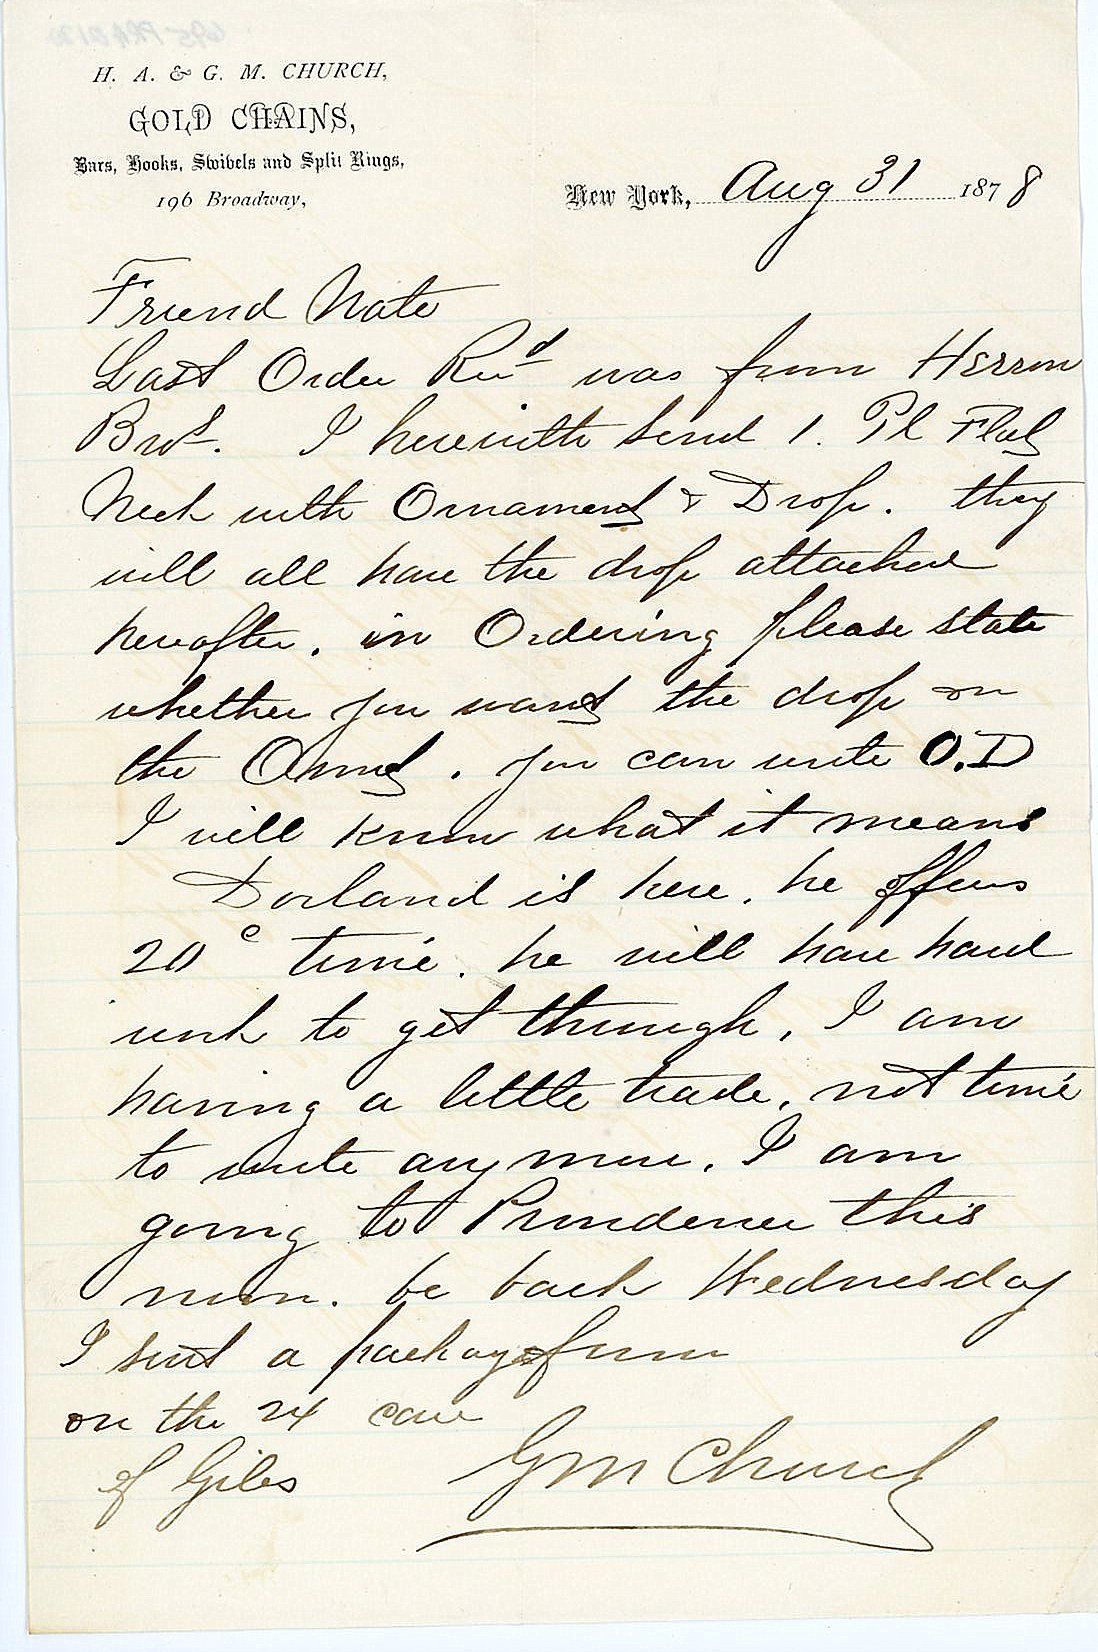 H. A. & G. M. CHURCH,
GOLD CHAINS,
Bars, Hooks, Swivels and Split Rings,
196 Broadway,
New York, Aug 31 1878
Friend Nate
Last Order Recd was from Herron
Bros. I herewith send 1. Pl Flat
Neck with Ornament & Drop. they
will all have the drop attached
hereafter. in Ordering please state
whether you want the drop on
the Ornmt. you can write O.D
I will know what it means
Dorland is here. he offers
20 c time. he will have hard
work to get through. I am
having a little trade. not time
to write any more. I am
going to Providence this
morn. be back Wednesday
I sent a package from
on the 24 care
of Giles
GM Church